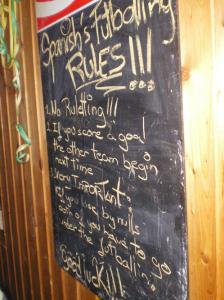 Spanish's Futbolling
RULES!!!
1. No Ruletting!!!
2. If you score a goal
the other team begin
next time
3. VERY IMPORTANT:
If you lose by nulls
both of you have to go
under the futballin.
Good luck!!!